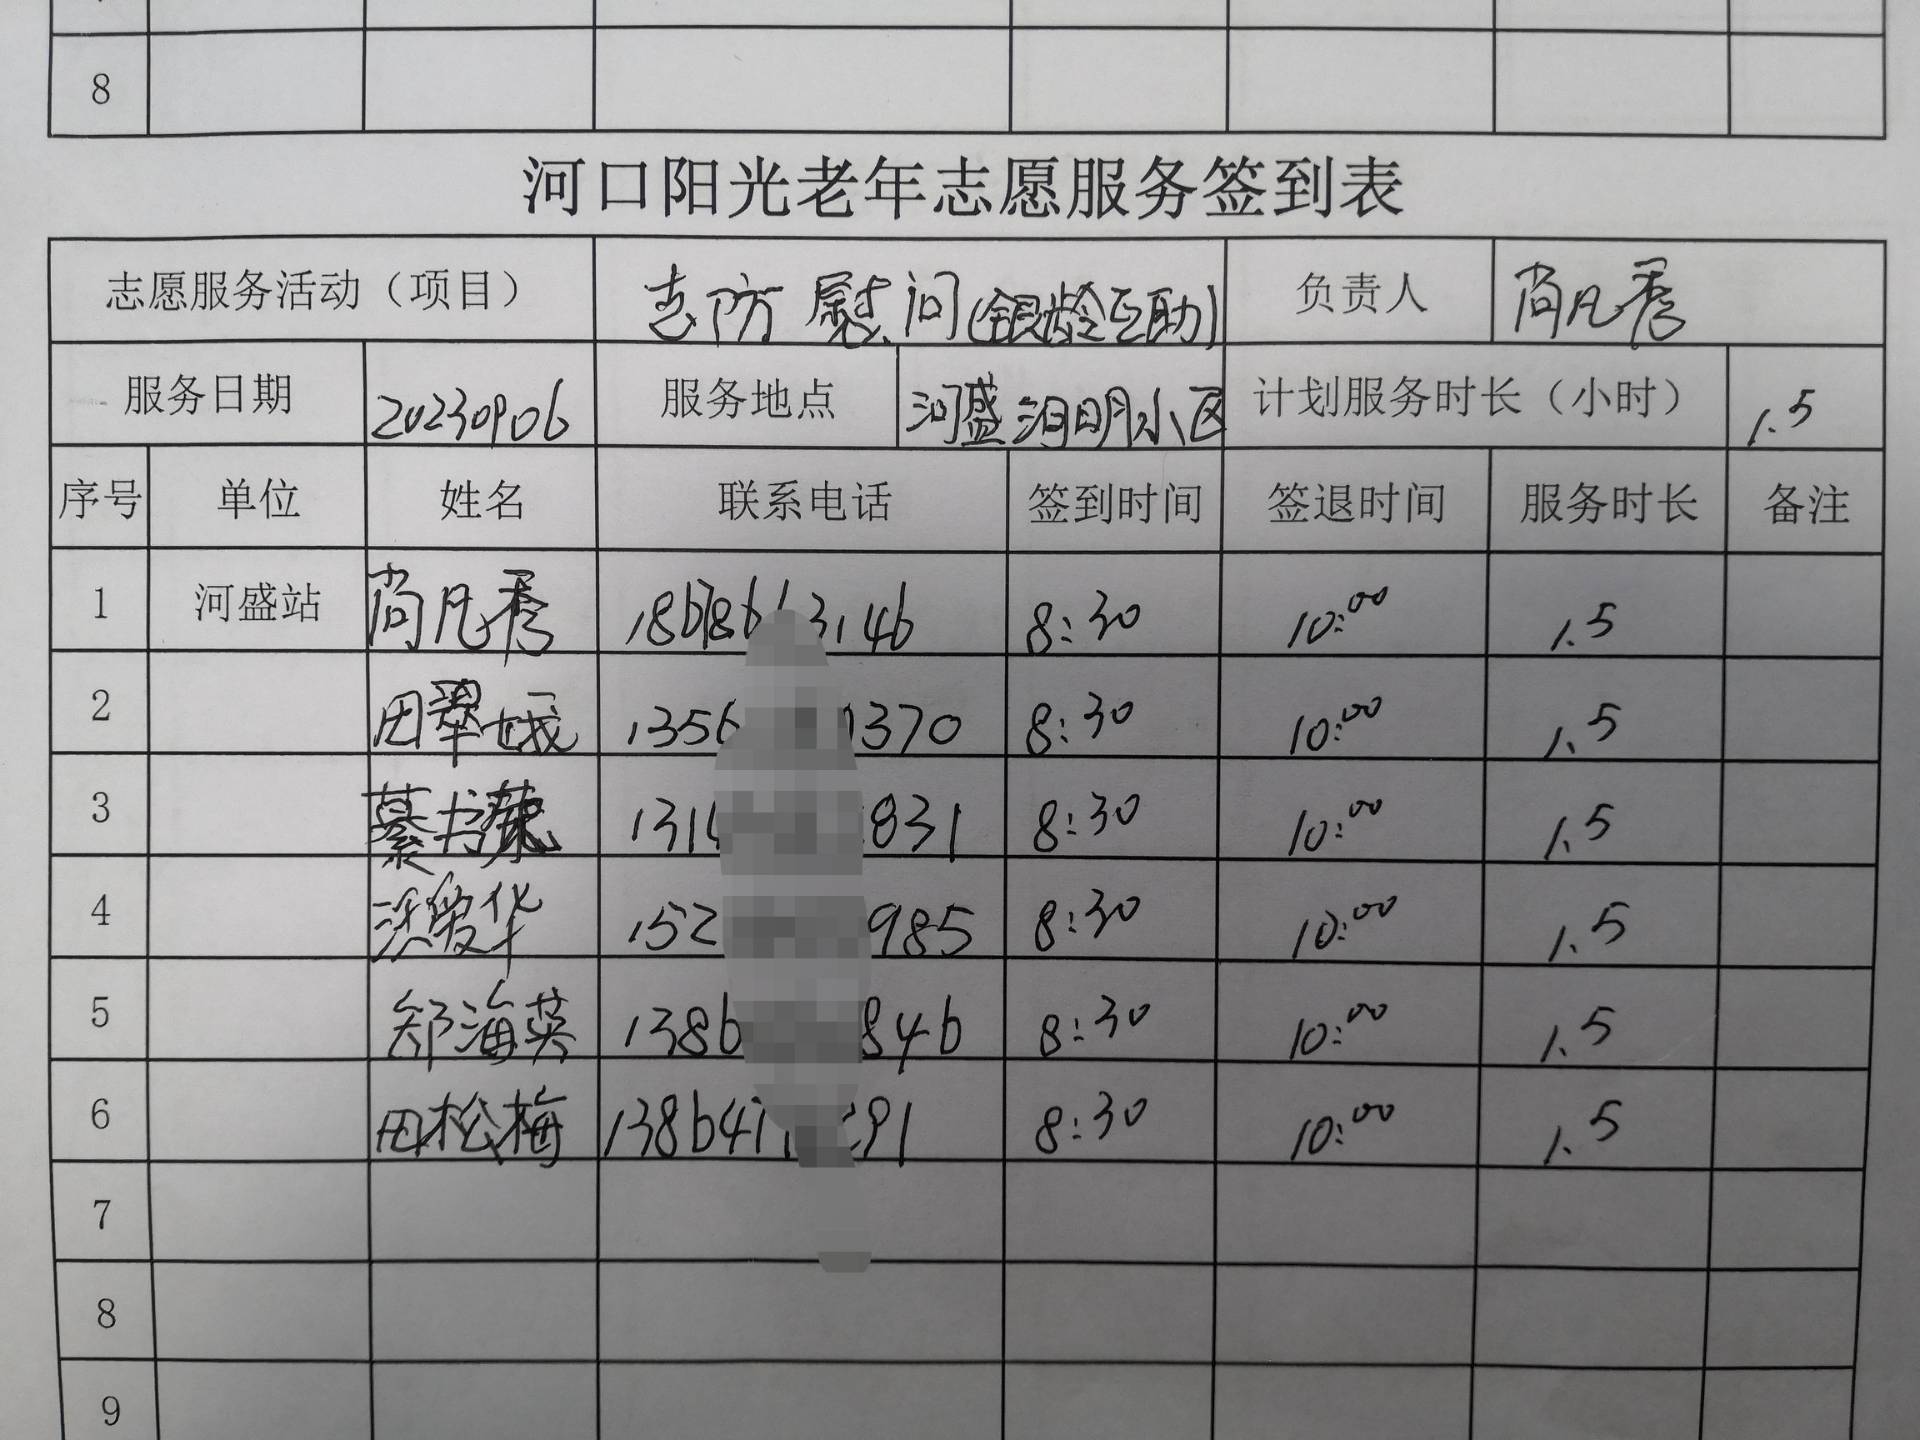 8
河口阳光老年志愿服务签到表
志愿服务活动（项目） 走访慰问(银龄互助) 负责人 尚凡秀
服务日期 20230906 服务地点 河盛 明小区 计划服务时长（小时） 1.5
序号 单位 姓名 联系电话 签到时间 签退时间 服务时长 备注
1 河盛站 尚凡秀 18678 3146 8:30 10:00 1.5
2 田翠娥 1356 1370 8:30 10:00 1.5
3 綦书 131 831 8:30 10:00 1.5
4 爱华 152 985 8:30 10:00 1.5
5 郑海英 1386 846 8:30 10:00 1.5
6 田松梅 138641 91 8:30 10:00 1.5
7
8
9